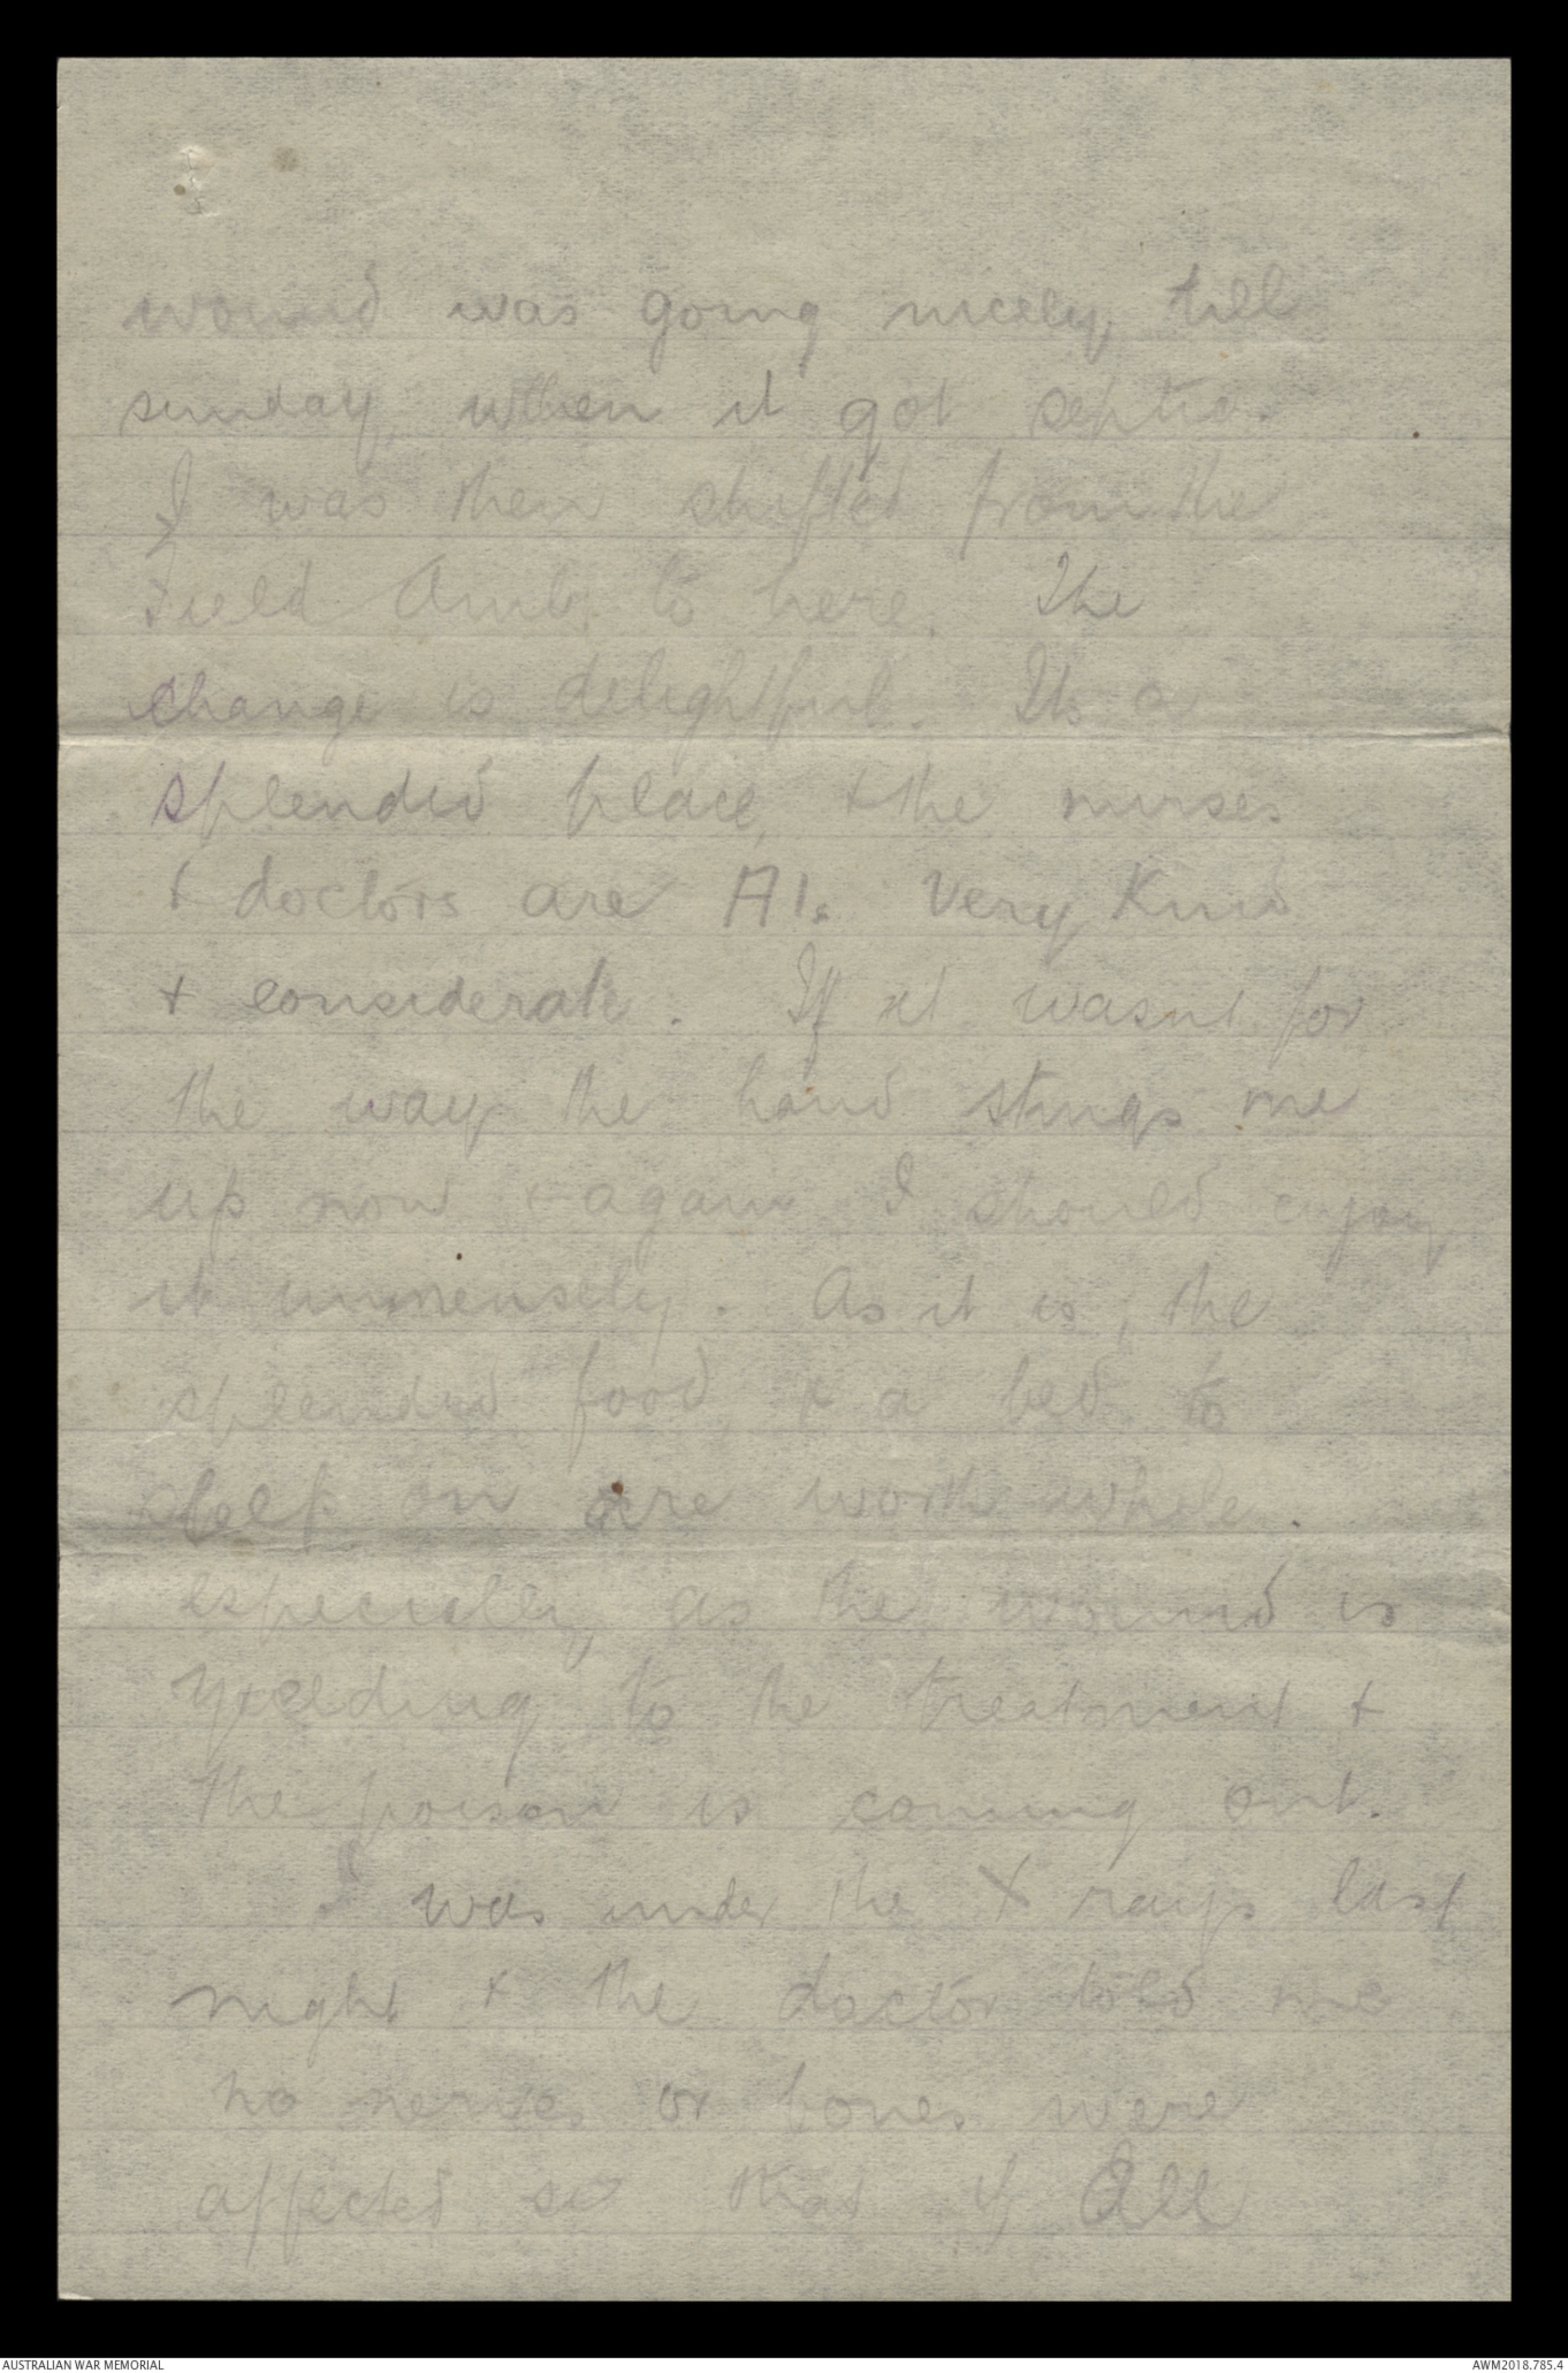 wound was going nicely, till
sunday, when it got septic.
I was then shifted from the
Field Amb. to here. The
change is delightful. Its a
splendid place, + the nurses
+ doctors are A1. Very Kind
+ considerate. If it wasnt for
the way the hand stings me
up now + again I should enjoy
it immensely. As it is, the
splendid food, + a bed to
sleep on are worth while.
especially, as the wound is
yielding to the treatment +
the poison is coming out.
I was under the X rays last
night + the doctor told me
no nerves or bones were
affected so that if all
AUSTRALIAN WAR MEMORIAL
AWM2018.785.4